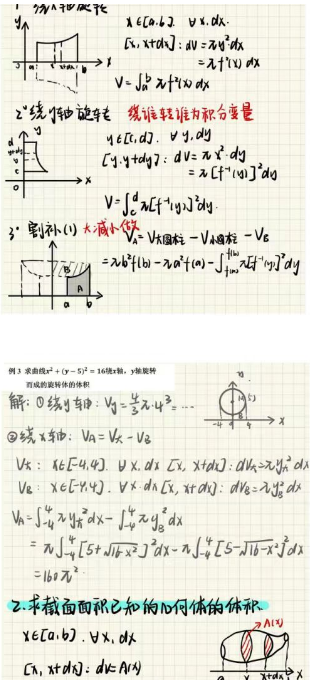 1° 绕x轴旋转
x∈[a,b]. ∀x,dx.
[x, x+dx]: dV=πy²dx
=πf²(x)dx
V=∫ₐᵇ πf²(x)dx
y
a x x+dx b x
2° 绕y轴旋转 绕谁转谁为积分变量
y∈[c,d]. ∀y,dy
[y,y+dy]: dV=πx²dy
=π[f⁻¹(y)]²dy
V=∫_c^d π[f⁻¹(y)]²dy.
y
d
y+dy
y
c
x
3° 割补(1) 大减小做
V_A=V大圆柱-V小圆柱-V_B
=πb²f(b)-πa²f(a)-∫_{f(a)}^{f(b)}π[f⁻¹(y)]²dy
B
A
a b x
例 3 求曲线x² + (y − 5)² = 16绕x轴, y轴旋转
而成的旋转体的体积
解: ①绕y轴: Vy=4/3π·4³=…
-4 4 x
②绕x轴: V_A=V大-V_B
V大: x∈[-4,4]. ∀x.dx [x, x+dx]: dV_大=πy_大²dx
V_B: x∈[-4,4]. ∀x.dx [x, x+dx]: dV_B=πy_B²dx
V_A=∫₋₄⁴πy_大²dx-∫₋₄⁴πy_B²dx
=π∫₋₄⁴[5+√16-x²]²dx-π∫₋₄⁴[5-√16-x²]²dx
=160π².
2. 求截面面积已知的几何体的体积.
x∈[a,b]. ∀x,dx
A(x)
[x, x+dx]: dV=A(x)
a x x+dx b